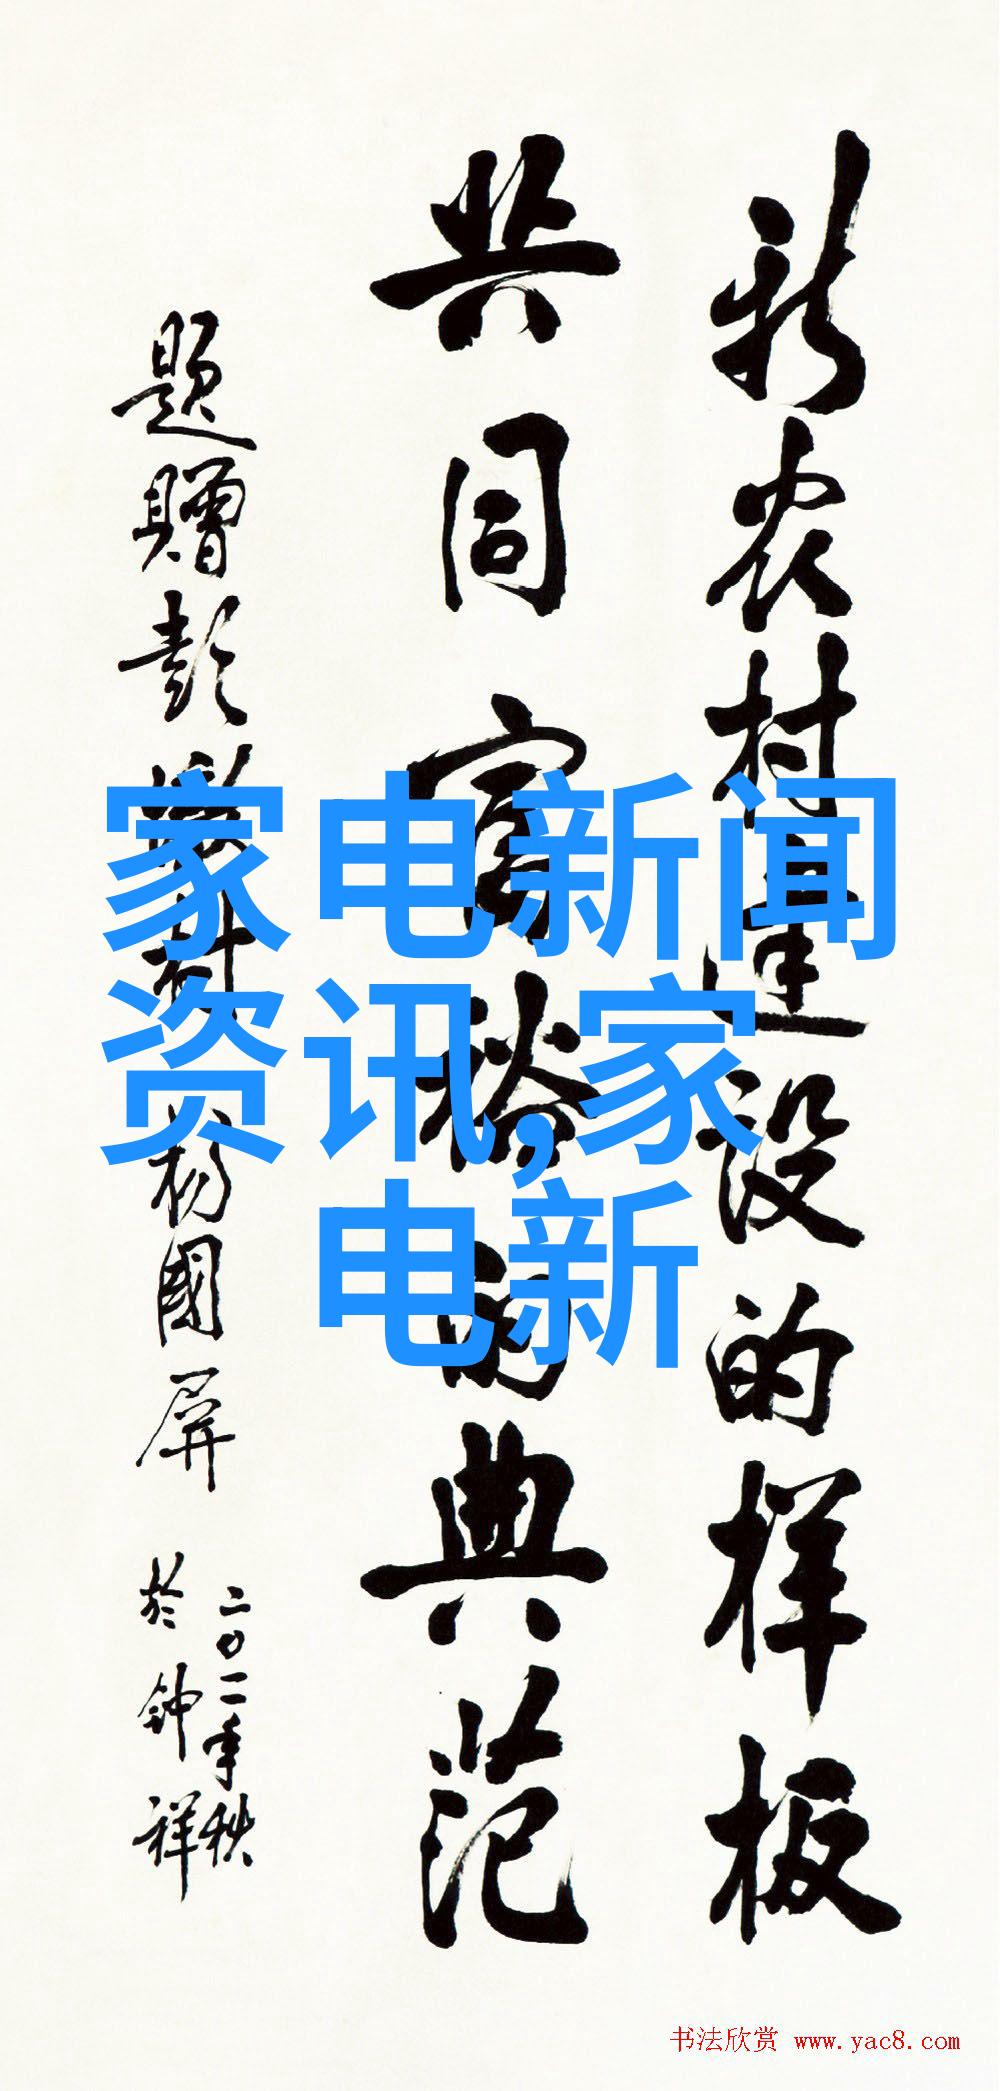 新农村建设的样板
共同富裕的典范
题赠彭墩村 杨国屏
二〇一一年秋
於钟祥
家电新闻
资讯,家
电新
书法欣赏 www.yac8.com